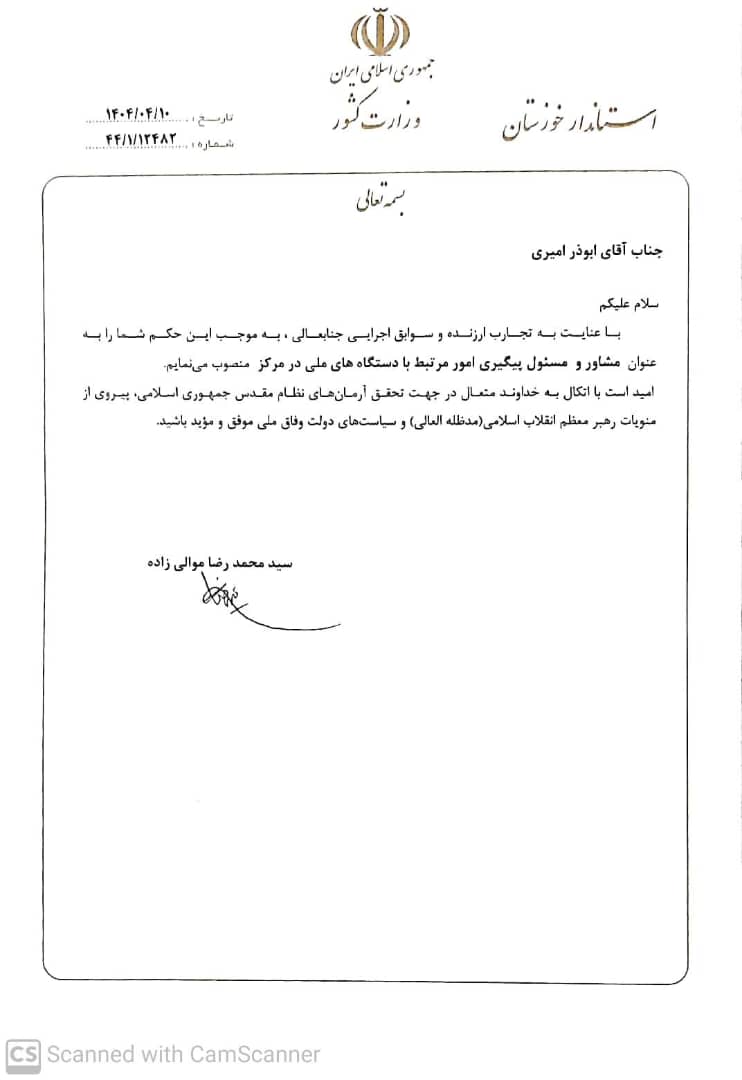 جمهوری اسلامی ایران
وزارت کشور
استاندار خوزستان
تاریخ : ۱۴۰۴/۰۴/۱۰
شماره : ۴۴/۱/۱۲۴۸۲
بسمه تعالی
جناب آقای ابوذر امیری
سلام علیکم
با عنایت به تجارب ارزنده و سوابق اجرایی جنابعالی ، به موجب این حکم شما را به
عنوان مشاور و مسئول پیگیری امور مرتبط با دستگاه های ملی در مرکز منصوب می‌نمایم.
امید است با اتکال به خداوند متعال در جهت تحقق آرمان‌های نظام مقدس جمهوری اسلامی، پیروی از
منویات رهبر معظم انقلاب اسلامی(مدظله العالی) و سیاست‌های دولت وفاق ملی موفق و مؤید باشید.
سید محمد رضا موالی زاده
CS Scanned with CamScanner